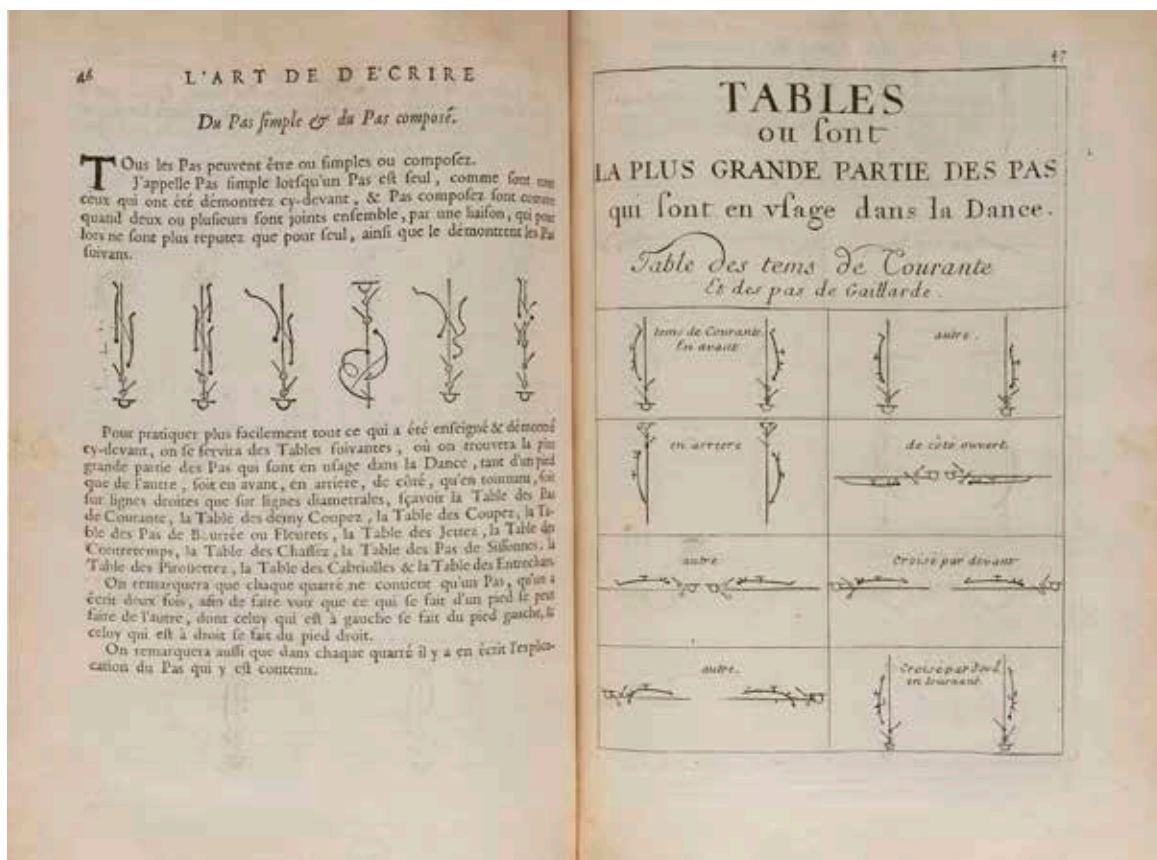 46
L'ART DE DÉCRIRE
Du Pas simple & du Pas composé.
TOus les Pas peuvent être ou simples ou composez.
J'appelle Pas simple lorsqu'un Pas est seul, comme sont tous
ceux qui ont été démontrez cy-devant, & Pas composez sont comme
quand deux ou plusieurs sont joints ensemble, par une liaison, qui pour
lors ne sont plus reputez que pour seul, ainsi que le démontrent les Pas
suivans.
Pour pratiquer plus facilement tout ce qui a été enseigné & démontré
cy-devant, on se servira des Tables suivantes, où on trouvera la plus
grande partie des Pas qui sont en usage dans la Dance, tant d'un pied
que de l'autre, soit en avant, en arriere, de côté, qu'en tournant, soit
sur lignes droites que sur lignes diametrales, sçavoir la Table des Pas
de Courante, la Table des demy Coupez, la Table des Coupez, la Ta-
ble des Pas de Bourrée ou Fleurets, la Table des Jettez, la Table des
Contretemps, la Table des Chassez, la Table des Pas de Sissonnes, la
Table des Pirouettez, la Table des Cabriolles & la Table des Entrechats.
On remarquera que chaque quarré ne contient qu'un Pas, qu'on a
écrit deux fois, afin de faire voir que ce qui se fait d'un pied se peut
faire de l'autre, dont celuy qui est à gauche se fait du pied gauche, &
celuy qui est à droit se fait du pied droit.
On remarquera aussi que dans chaque quarré il y a en écrit l'expli-
cation du Pas qui y est contenu.
47
TABLES
ou sont
LA PLUS GRANDE PARTIE DES PAS
qui sont en vsage dans la Dance.
Table des tems de Courante
Et des pas de Gaillarde.
tems de Courante
En avant
autre.
en arriere
de côté ouvert.
autre
Croisé par devant
autre.
Croisé par
en tournant.